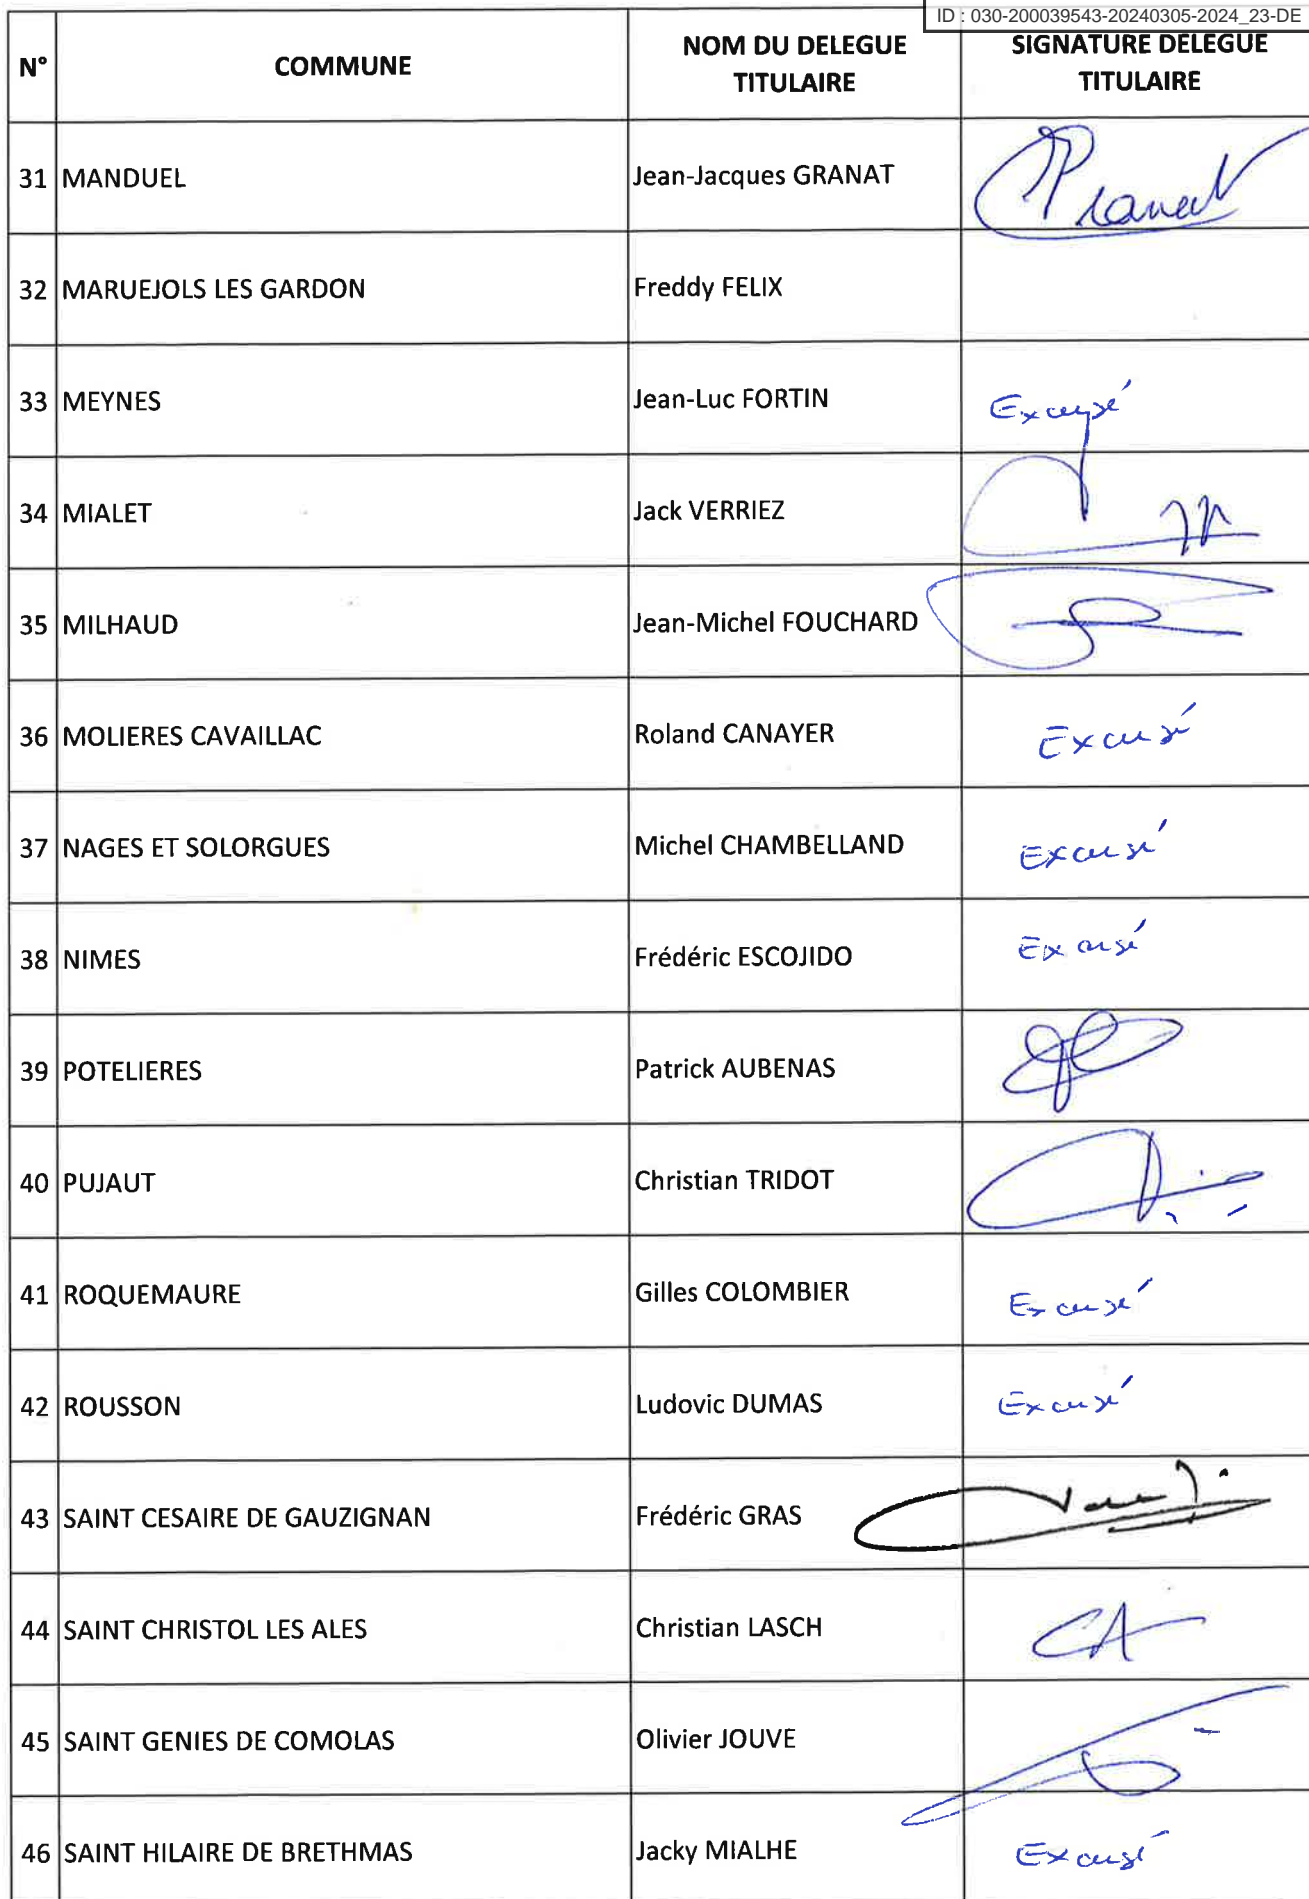 ID : 030-200039543-20240305-2024_23-DE
N° COMMUNE NOM DU DELEGUE TITULAIRE SIGNATURE DELEGUE TITULAIRE
31 MANDUEL Jean-Jacques GRANAT
32 MARUEJOLS LES GARDON Freddy FELIX
33 MEYNES Jean-Luc FORTIN Excusé
34 MIALET Jack VERRIEZ
35 MILHAUD Jean-Michel FOUCHARD
36 MOLIERES CAVAILLAC Roland CANAYER Excusé
37 NAGES ET SOLORGUES Michel CHAMBELLAND Excusé
38 NIMES Frédéric ESCOJIDO Excusé
39 POTELIERES Patrick AUBENAS
40 PUJAUT Christian TRIDOT
41 ROQUEMAURE Gilles COLOMBIER Excusé
42 ROUSSON Ludovic DUMAS Excusé
43 SAINT CESAIRE DE GAUZIGNAN Frédéric GRAS
44 SAINT CHRISTOL LES ALES Christian LASCH
45 SAINT GENIES DE COMOLAS Olivier JOUVE
46 SAINT HILAIRE DE BRETHMAS Jacky MIALHE Excusé